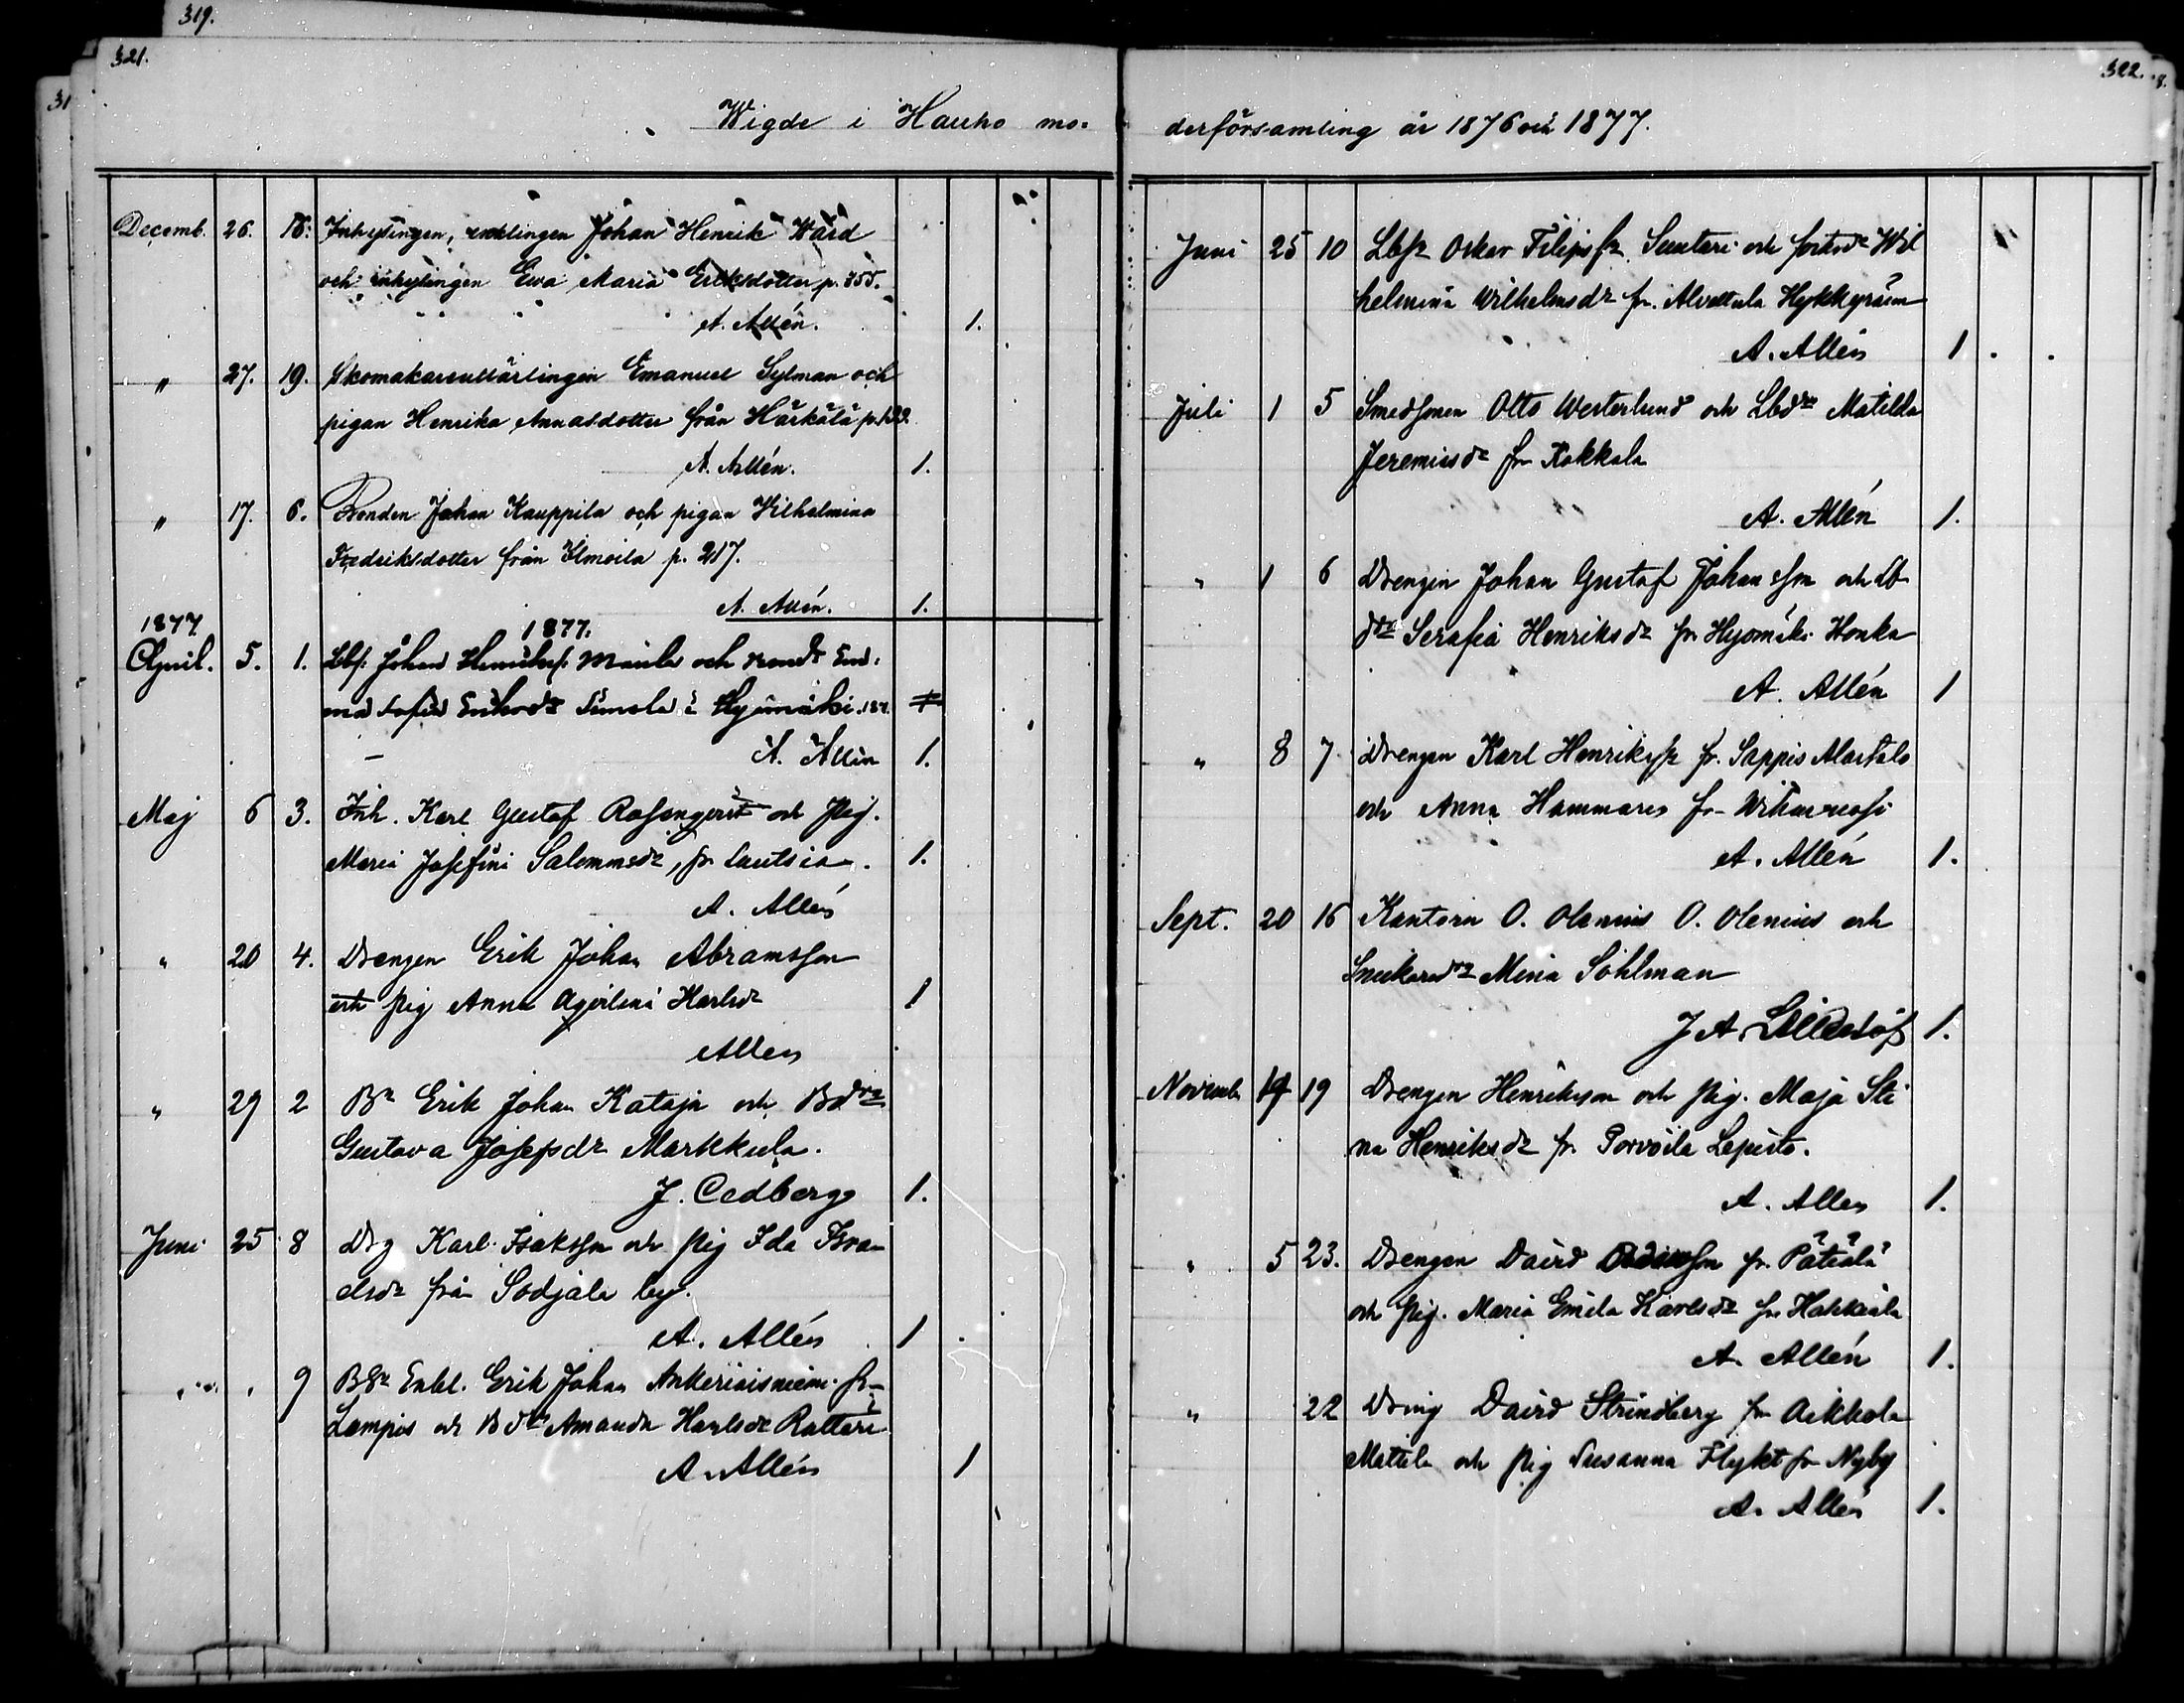 319.
321.
322.
Wigde i Hauho mo-
derförsamling år 1876 och 1877.
Decemb. 26. 18. Inhysingen, enklingen Johan Henrik Wärd
och inhysingen Ewa Maria Eriksdotter p. 355.
A. Allén. 1.
" 27. 19. Skomakare Emanuel Sylman och
pigan Henrika Annasdotter från Härkälä p.
A. Allén. 1.
" 17. 6. Bonden Johan Kauppila och pigan Wilhelmina
Fredriksdotter från Ilmoila p. 217.
A. Allén. 1.
1877 1877.
April. 5. 1. Lbs. Johan Henriks. Maula och
Sofia Eriksdr Simola i Hyömäki
A. Allén 1.
Maj 6 3. Inh. Karl Gustaf Rosenqvist och pig.
Maria Josefina Salomonsdr, fr. Lautsia. 1.
A. Allén
" 20 4. Drengen Erik Johan Abramsson
och pig Anna Karlsdr 1
Allén
" 29 2 Bn Erik Johan Kataja och Bdrn
Gustava Josefsdr Markkula.
J. Cedberg 1.
Juni 25 8 Drg Karl Isaksson och pig Ida Isra-
elsdr från Sodjala by.
A. Allén 1
" 9 Enkl. Erik Johan Ankeriaisniemi fr
Lampis och Bdrn Amanda Karlsdr Rattari
A. Allén 1
Juni 25 10 Lbsn Oskar Filipssn Suutari och Wil
helmina Wilhelmsdr fr. Alvettula Hykkyräsm
A. Allén 1
Juli 1 5 Smedsonen Otto Westerlund och Lbdrn Matilda
Jeremiasdr fr Kokkala
A. Allén 1.
" 1 6 Drengen Johan Gustaf Johansson och Lb
drn Serafia Henriksdr fr Hyömäki Honka
A. Allén 1
" 8 7 Drengen Karl Henrikssn fr. Sappis Alastalo
och Anna Hammaren fr Wihavuosi
A. Allén 1.
Sept. 20 16 Kantorn O. Olenius O. Olenius och
Snickaredrn Mina Söhlman
J A 1.
Novemb 19 Drengen Henriksson och pig. Maja Sti
na Henriksdr fr. Porvoila Lepistö.
A. Allén 1.
" 5 23. Drengen David fr. Pätiälä
och pig. Maria Emila Karlsdr fr. Hahkiala
A. Allén 1.
" 22 Dreng David Strindberg fr Okkola
Mattila och pig Susanna Flykt fr Nyby
A. Allén 1.